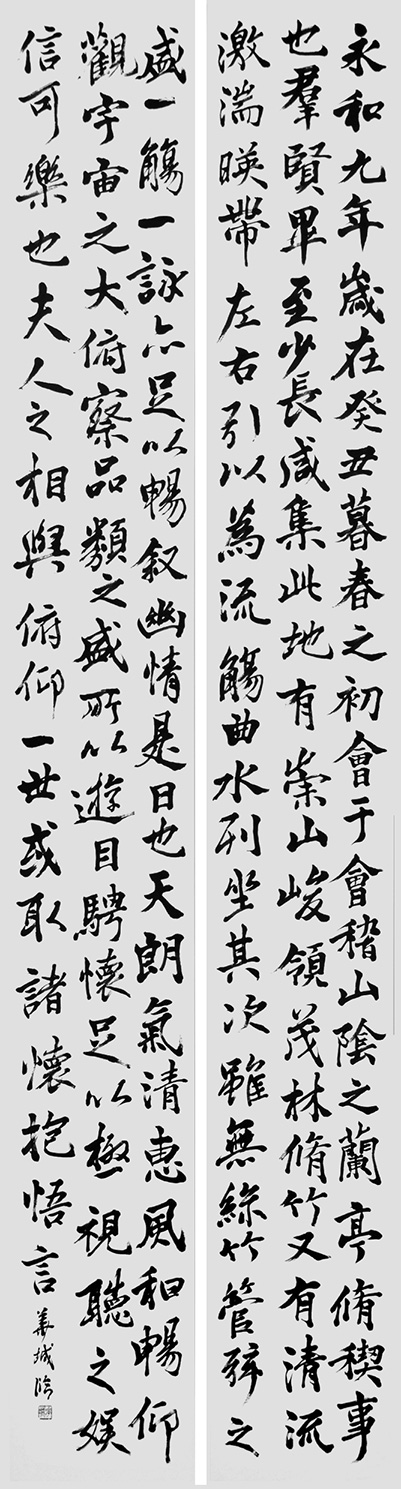 永和九年歲在癸丑暮春之初會于會稽山陰之蘭亭脩稧事
也羣賢畢至少長咸集此地有崇山峻領茂林脩竹又有清流
激湍暎帶左右引以為流觴曲水列坐其次雖無絲竹管弦之
盛一觴一詠亦足以暢叙幽情是日也天朗氣清惠風和暢仰
觀宇宙之大俯察品類之盛所以遊目騁懷足以極視聽之娛
信可樂也夫人之相與俯仰一世或取諸懷抱悟言
華城臨